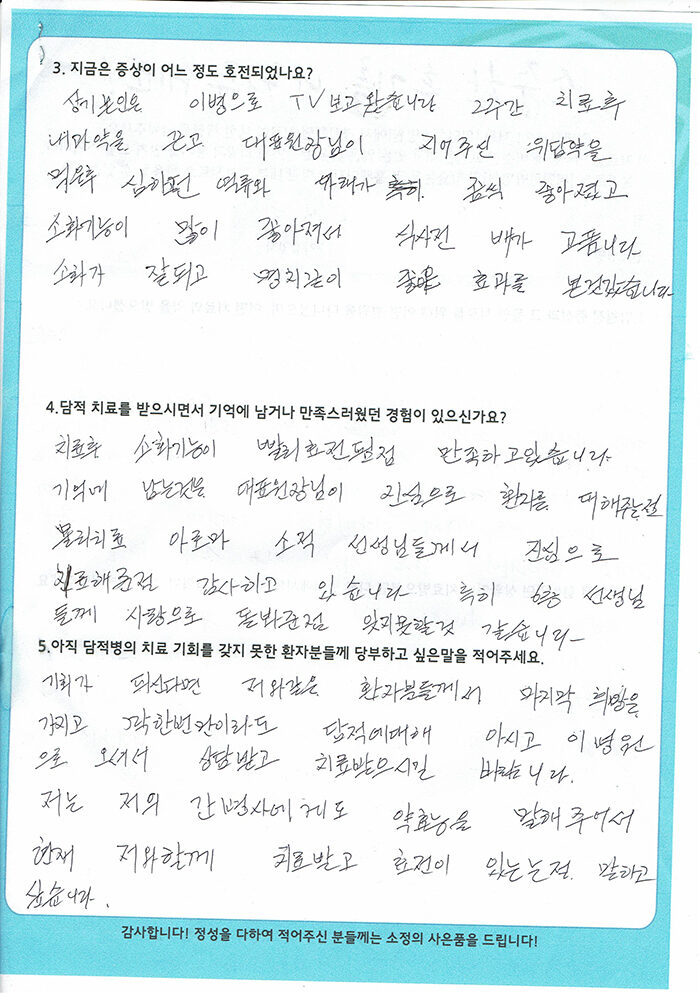 3. 지금은 증상이 어느 정도 호전되었나요?
상기본인은 이병으로 TV보고 왔습니다 2주간 치료후
내과약을 끈고 대표원장님이 지어주신 위담약을
먹은후 심하던 역류와 가래가 특히 좋아졌고
소화기능이 많이 좋아져서 식사전 배가 고픕니다
소화가 잘되고 명치끝이 효과를 본것같습니다
4.담적 치료를 받으시면서 기억에 남거나 만족스러웠던 경험이 있으신가요?
치료후 소화기능이 빨리호전된점 만족하고있습니다
기억에 남는것은 대표원장님이 진심으로 환자를 대해주는점
물리치료 아로마 소적 선생님들께서 진심으로
치료해준점 감사하고 있습니다 특히 6층 선생님
들께 사랑으로 돌봐준점 잊지못할것 같습니다
5.아직 담적병의 치료 기회를 갖지 못한 환자분들께 당부하고 싶은말을 적어주세요.
기회가 되신다면 저와같은 환자분들께서 마지막 희망을
가지고 꼭한번만이라도 담적에대해 아시고 이병원
으로 오셔서 상담받고 치료받으시길 바랍니다.
저는 저의 간병사에게도 약효능을 말해주어서
현재 저와함께 치료받고 호전이 있는는점 말하고
싶습니다.
감사합니다! 정성을 다하여 적어주신 분들께는 소정의 사은품을 드립니다!